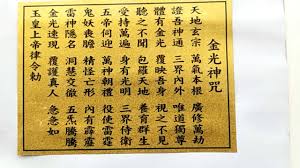 金光神咒
天地玄宗 萬氣本根 廣修萬劫
證吾神通 三界內外 唯道獨尊
體有金光 覆映吾身 視之不見
聽之不聞 包羅天地 養育群生
受持萬遍 身有光明 三界侍衛
五帝司迎 萬神朝禮 役使雷霆
鬼妖喪膽 精怪亡形 內有霹靂
雷神隱名 洞慧交徹 五炁騰騰
金光速現 覆護真人 急急如
玉皇上帝律令勅